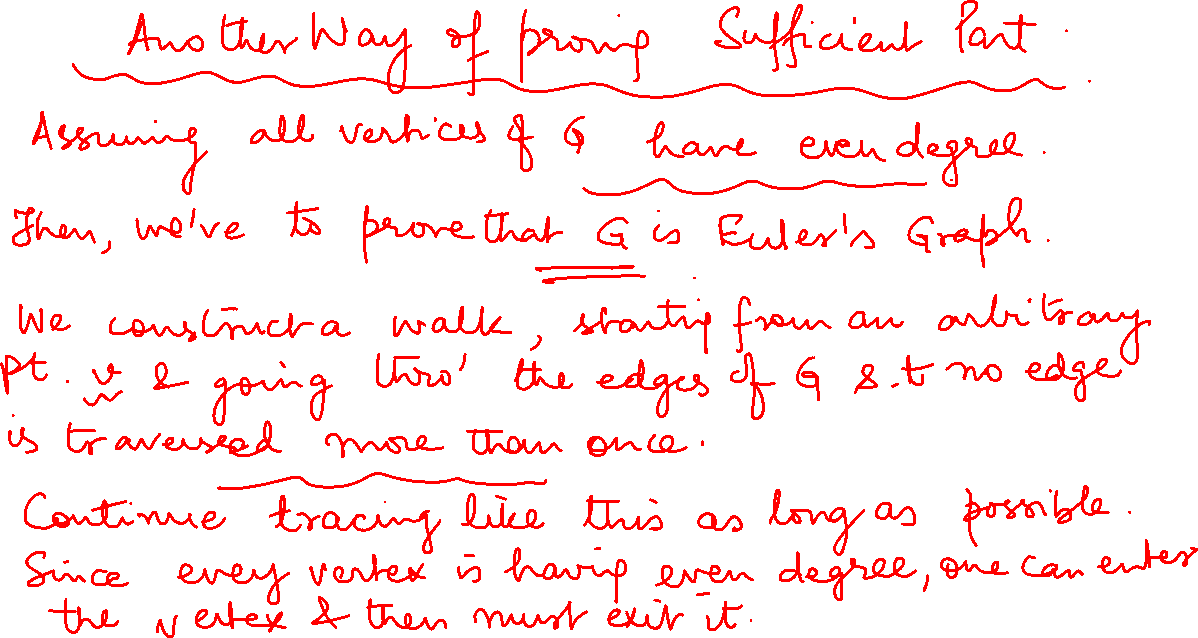 Another Way of proving Sufficient Part.
Assuming all vertices of G have even degree.
Then, we've to prove that G is Euler's Graph.
We construct a walk, starting from an arbitrary
pt. v & going thro' the edges of G s.t no edge
is traversed more than once.
Continue tracing like this as long as possible.
Since every vertex is having even degree, one can enter
the vertex & then must exit it.